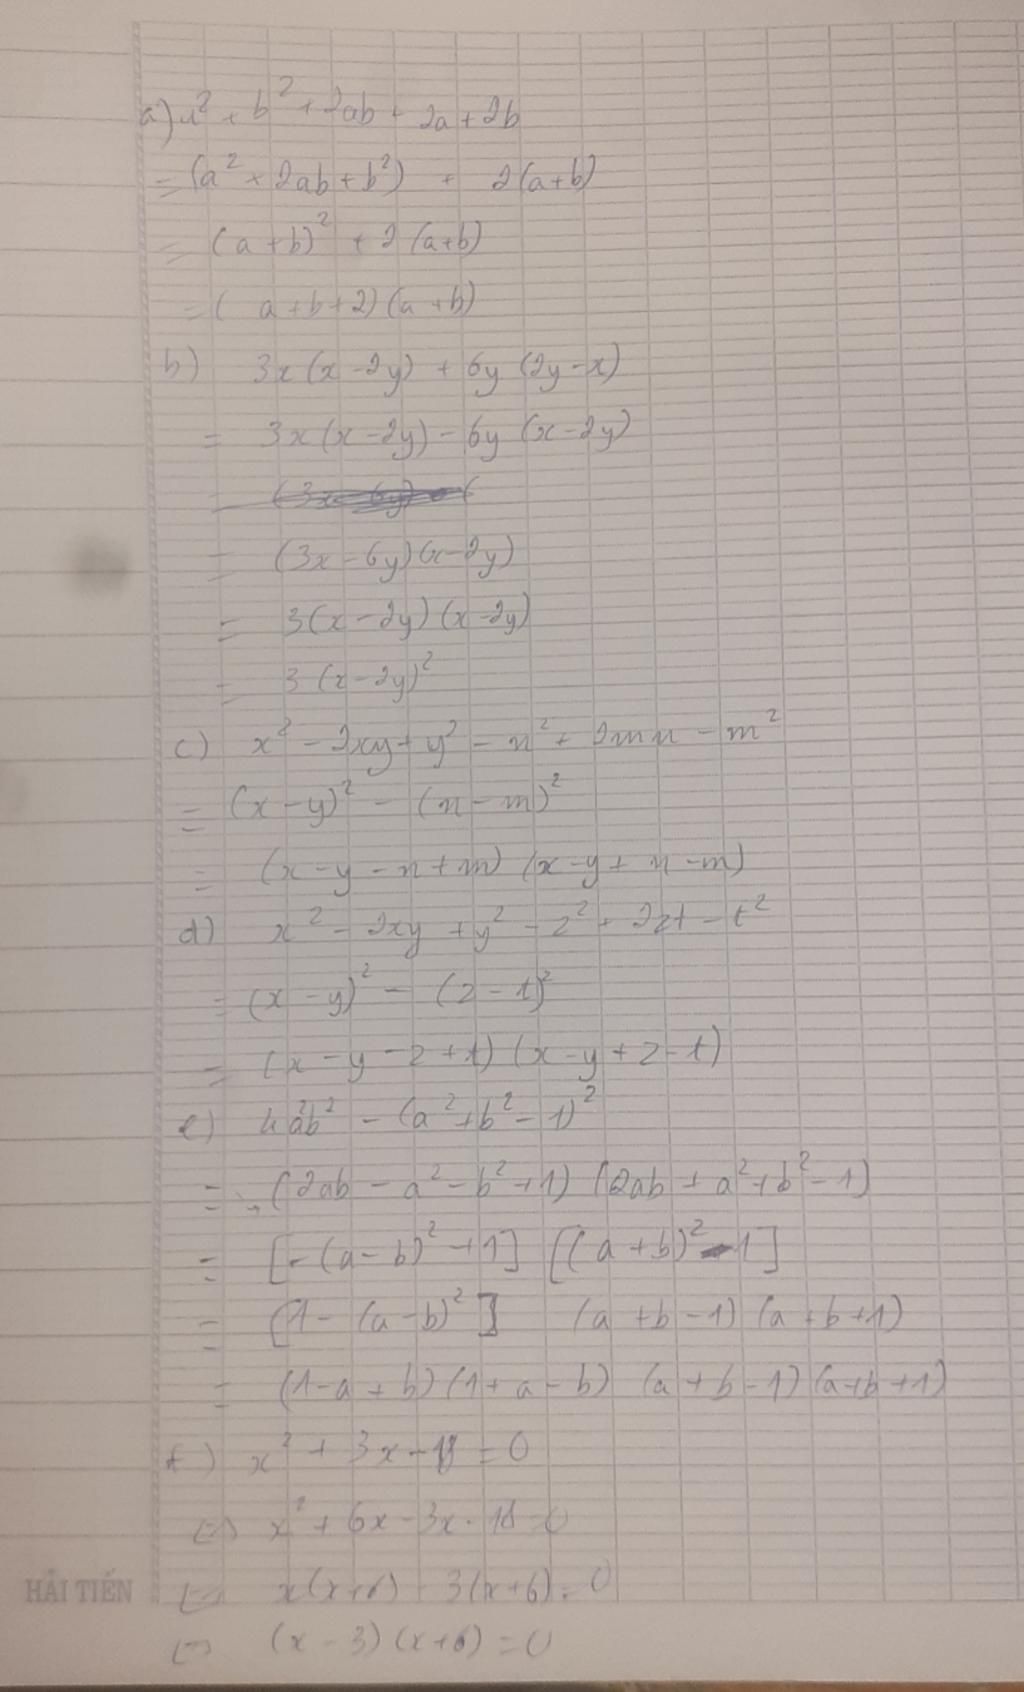 a) a² + b² + 2ab + 2a + 2b
= (a² + 2ab + b²) + 2(a+b)
= (a+b)² + 2(a+b)
= (a+b+2)(a+b)
b) 3x(x-2y) + 6y(2y-x)
= 3x(x-2y) - 6y(x-2y)
= (3x-6y)(x-2y)
= 3(x-2y)(x-2y)
= 3(x-2y)²
c) x² - 2xy + y² - n² + 2mn - m²
= (x-y)² - (n-m)²
= (x-y-n+m)(x-y+n-m)
d) x² - 2xy + y² - z² + 2zt - t²
= (x-y)² - (z-t)²
= (x-y-z+t)(x-y+z-t)
e) 4a²b² - (a²+b²-1)²
= (2ab - a² - b² + 1)(2ab + a² + b² - 1)
= [-(a-b)² + 1] [(a+b)² - 1]
= [1 - (a-b)²] (a+b-1)(a+b+1)
= (1-a+b)(1+a-b)(a+b-1)(a+b+1)
f) x² + 3x - 18 = 0
⇔ x² + 6x - 3x - 18 = 0
⇔ x(x+6) - 3(x+6) = 0
HẢI TIẾN
⇔ (x-3)(x+6) = 0